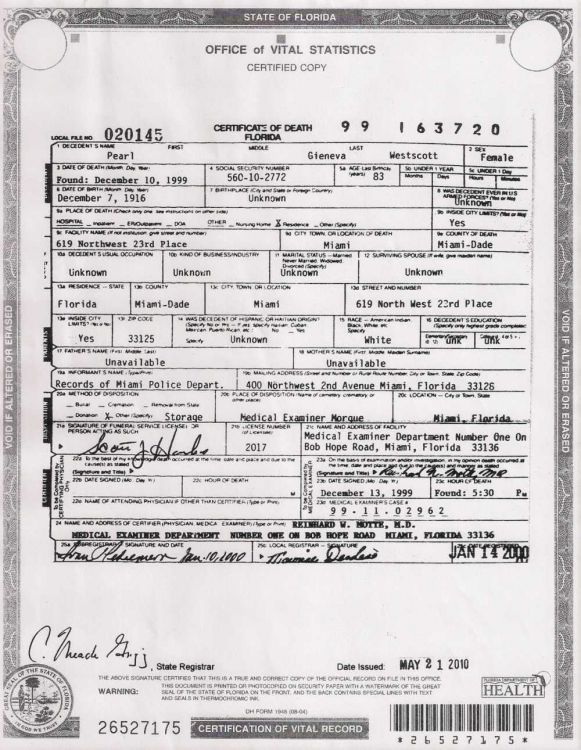 STATE OF FLORIDA
OFFICE of VITAL STATISTICS
CERTIFIED COPY
LOCAL FILE NO. 020145
CERTIFICATE OF DEATH
FLORIDA
99 163720
1 DECEDENT'S NAME FIRST MIDDLE LAST 2 SEX
Pearl Gieneva Westscott Female
3 DATE OF DEATH (Month, Day, Year) 4 SOCIAL SECURITY NUMBER 5a AGE-Last Birthday (years) 5b UNDER 1 YEAR 5c UNDER 1 DAY
Months Days Hours Minutes
Found: December 10, 1999 560-10-2772 83
6 DATE OF BIRTH (Month, Day, Year) 7 BIRTHPLACE (City and State or Foreign Country) 8 WAS DECEDENT EVER IN U.S. ARMED FORCES? (Yes or No)
December 7, 1916 Unknown Unknown
9a PLACE OF DEATH (Check only one: see instructions on other side) 9b INSIDE CITY LIMITS? (Yes or No)
HOSPITAL Inpatient ER/Outpatient DOA OTHER Nursing Home X Residence Other (Specify) Yes
9c FACILITY NAME (If not institution, give street and number) 9d CITY, TOWN, OR LOCATION OF DEATH 9e COUNTY OF DEATH
619 Northwest 23rd Place Miami Miami-Dade
10a DECEDENT'S USUAL OCCUPATION 10b KIND OF BUSINESS/INDUSTRY 11 MARITAL STATUS - Married, Never Married, Widowed, Divorced (Specify) 12 SURVIVING SPOUSE (If wife, give maiden name)
Unknown Unknown Unknown Unknown
13a RESIDENCE - STATE 13b COUNTY 13c CITY, TOWN, OR LOCATION 13d STREET AND NUMBER
Florida Miami-Dade Miami 619 North West 23rd Place
13e INSIDE CITY LIMITS? (Yes or No) 13f ZIP CODE 14 WAS DECEDENT OF HISPANIC OR HAITIAN ORIGIN? (Specify No or Yes - If yes, specify Haitian, Cuban, Mexican, Puerto Rican, etc.) No Yes 15 RACE - American Indian, Black, White, etc. Specify 16 DECEDENT'S EDUCATION (Specify only highest grade completed)
Yes 33125 Specify Unknown White Unk Unk
17 FATHER'S NAME (First, Middle, Last) 18 MOTHER'S NAME (First, Middle, Maiden Surname)
Unavailable Unavailable
19a INFORMANT'S NAME (Type/Print) 19b MAILING ADDRESS (Street and Number or Rural Route Number, City or Town, State, Zip Code)
Records of Miami Police Depart. 400 Northwest 2nd Avenue Miami, Florida 33128
20a METHOD OF DISPOSITION 20b PLACE OF DISPOSITION (Name of cemetery, crematory, or other place) 20c LOCATION - City or Town, State
Burial Cremation Removal from State
Donation X Other (Specify) Storage Medical Examiner Morgue Miami, Florida
21a SIGNATURE OF FUNERAL SERVICE LICENSEE OR PERSON ACTING AS SUCH 21b LICENSE NUMBER (of Licensee) 21c NAME AND ADDRESS OF FACILITY
2017 Medical Examiner Department Number One On
Bob Hope Road, Miami, Florida 33136
22a To the best of my knowledge, death occurred at the time, date and place and due to the cause(s) as stated
(Signature and Title)
23a On the basis of examination and/or investigation, in my opinion death occurred at the time, date and place and due to the cause(s) and manner as stated
(Signature and Title)
22b DATE SIGNED (Mo., Day, Yr.) 22c HOUR OF DEATH M 23b DATE SIGNED (Mo., Day, Yr.) 23c HOUR OF DEATH
December 13, 1999 Found: 5:30 PM
22d NAME OF ATTENDING PHYSICIAN IF OTHER THAN CERTIFIER (Type or Print) 23d MEDICAL EXAMINER'S CASE #
99-11-02962
24 NAME AND ADDRESS OF CERTIFIER (PHYSICIAN, MEDICAL EXAMINER) (Type or Print) REINHARD W. MOTTE, M.D.
MEDICAL EXAMINER DEPARTMENT NUMBER ONE ON BOB HOPE ROAD MIAMI, FLORIDA 33136
25a SUBREGISTRAR - SIGNATURE AND DATE 25b LOCAL REGISTRAR - SIGNATURE 25c DATE REGISTERED
Jan. 10, 2000 JAN 14 2000
, State Registrar
Date Issued: MAY 21 2010
THE ABOVE SIGNATURE CERTIFIES THAT THIS IS A TRUE AND CORRECT COPY OF THE OFFICIAL RECORD ON FILE IN THIS OFFICE.
WARNING: THIS DOCUMENT IS PRINTED OR PHOTOCOPIED ON SECURITY PAPER WITH A WATERMARK OF THE GREAT
SEAL OF THE STATE OF FLORIDA ON THE FRONT, AND THE BACK CONTAINS SPECIAL LINES WITH TEXT
AND SEALS IN THERMOCHROMIC INK.
DH FORM 1946 (08-04)
FLORIDA DEPARTMENT OF
HEALTH
26527175
CERTIFICATION OF VITAL RECORD
*26527175*
VOID IF ALTERED OR ERASED
VOID IF ALTERED OR ERASED
GREAT SEAL OF THE STATE OF FLORIDA
IN GOD WE TRUST